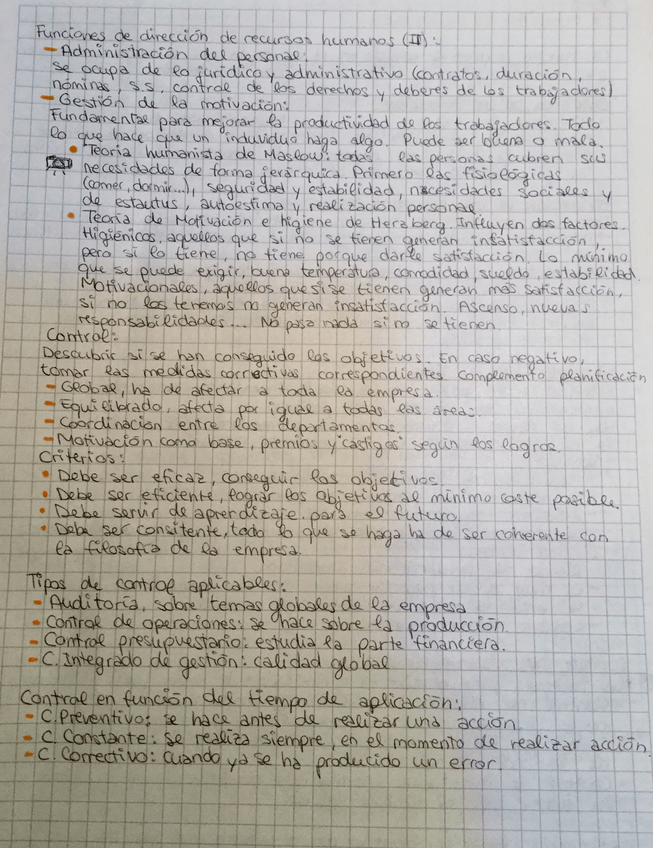 Funciones de dirección de recursos humanos (II):
- Administración del personal:
se ocupa de lo jurídico y administrativo (contratos, duración,
nóminas, s.s, control de los derechos y deberes de los trabajadores)
- Gestión de la motivación:
Fundamental para mejorar la productividad de los trabajadores. Todo
lo que hace que un induviduo haga algo. Puede ser buena o mala.
• Teoría humanista de Maslow: todas las personas cubren sus
necesidades de forma jerárquica. Primero las fisiológicas
(comer, dormir...), seguridad y estabilidad, necesidades sociales y
de estautus, autoestima y realización personal
• Teoría de Motivación e higiene de Herzberg. Influyen dos factores.
Higiénicos, aquellos que si no se tienen generan insatisfacción,
pero si lo tiene, no tiene porque darle satisfacción. Lo mínimo
que se puede exigir, buena temperatura, comodidad, sueldo, estabilidad.
Motivacionales, aquellos que si se tienen generan más satisfacción,
si no los tenemos no generan insatisfacción. Ascenso, nuevas
responsabilidades... No pasa nada si no se tienen.
Control:
Descubrir si se han conseguido los objetivos. En caso negativo,
tomar las medidas correctivas correspondientes Complemento planificación
- Global, ha de afectar a toda la empresa.
- Equilibrado, afecta por igual a todas las áreas.
- Coordinación entre los departamentos.
- Motivación como base, premios y "castigos" según los logros.
Criterios:
• Debe ser eficaz, conseguir los objetivos.
• Debe ser eficiente, lograr los objetivos al mínimo coste posible.
• Debe servir de aprendizaje para el futuro.
• Debe ser consitente, todo lo que se haga ha de ser coherente con
la filosofía de la empresa.
Tipos de control aplicables:
- Auditoría, sobre temas globales de la empresa
- Control de operaciones: se hace sobre la producción.
- Control presupuestario: estudia la parte financiera.
- C. Integrado de gestión: calidad global
Control en función del tiempo de aplicación:
- C. Preventivo: se hace antes de realizar una acción
- C. Constante: se realiza siempre, en el momento de realizar acción.
- C. Correctivo: cuando ya se ha producido un error.